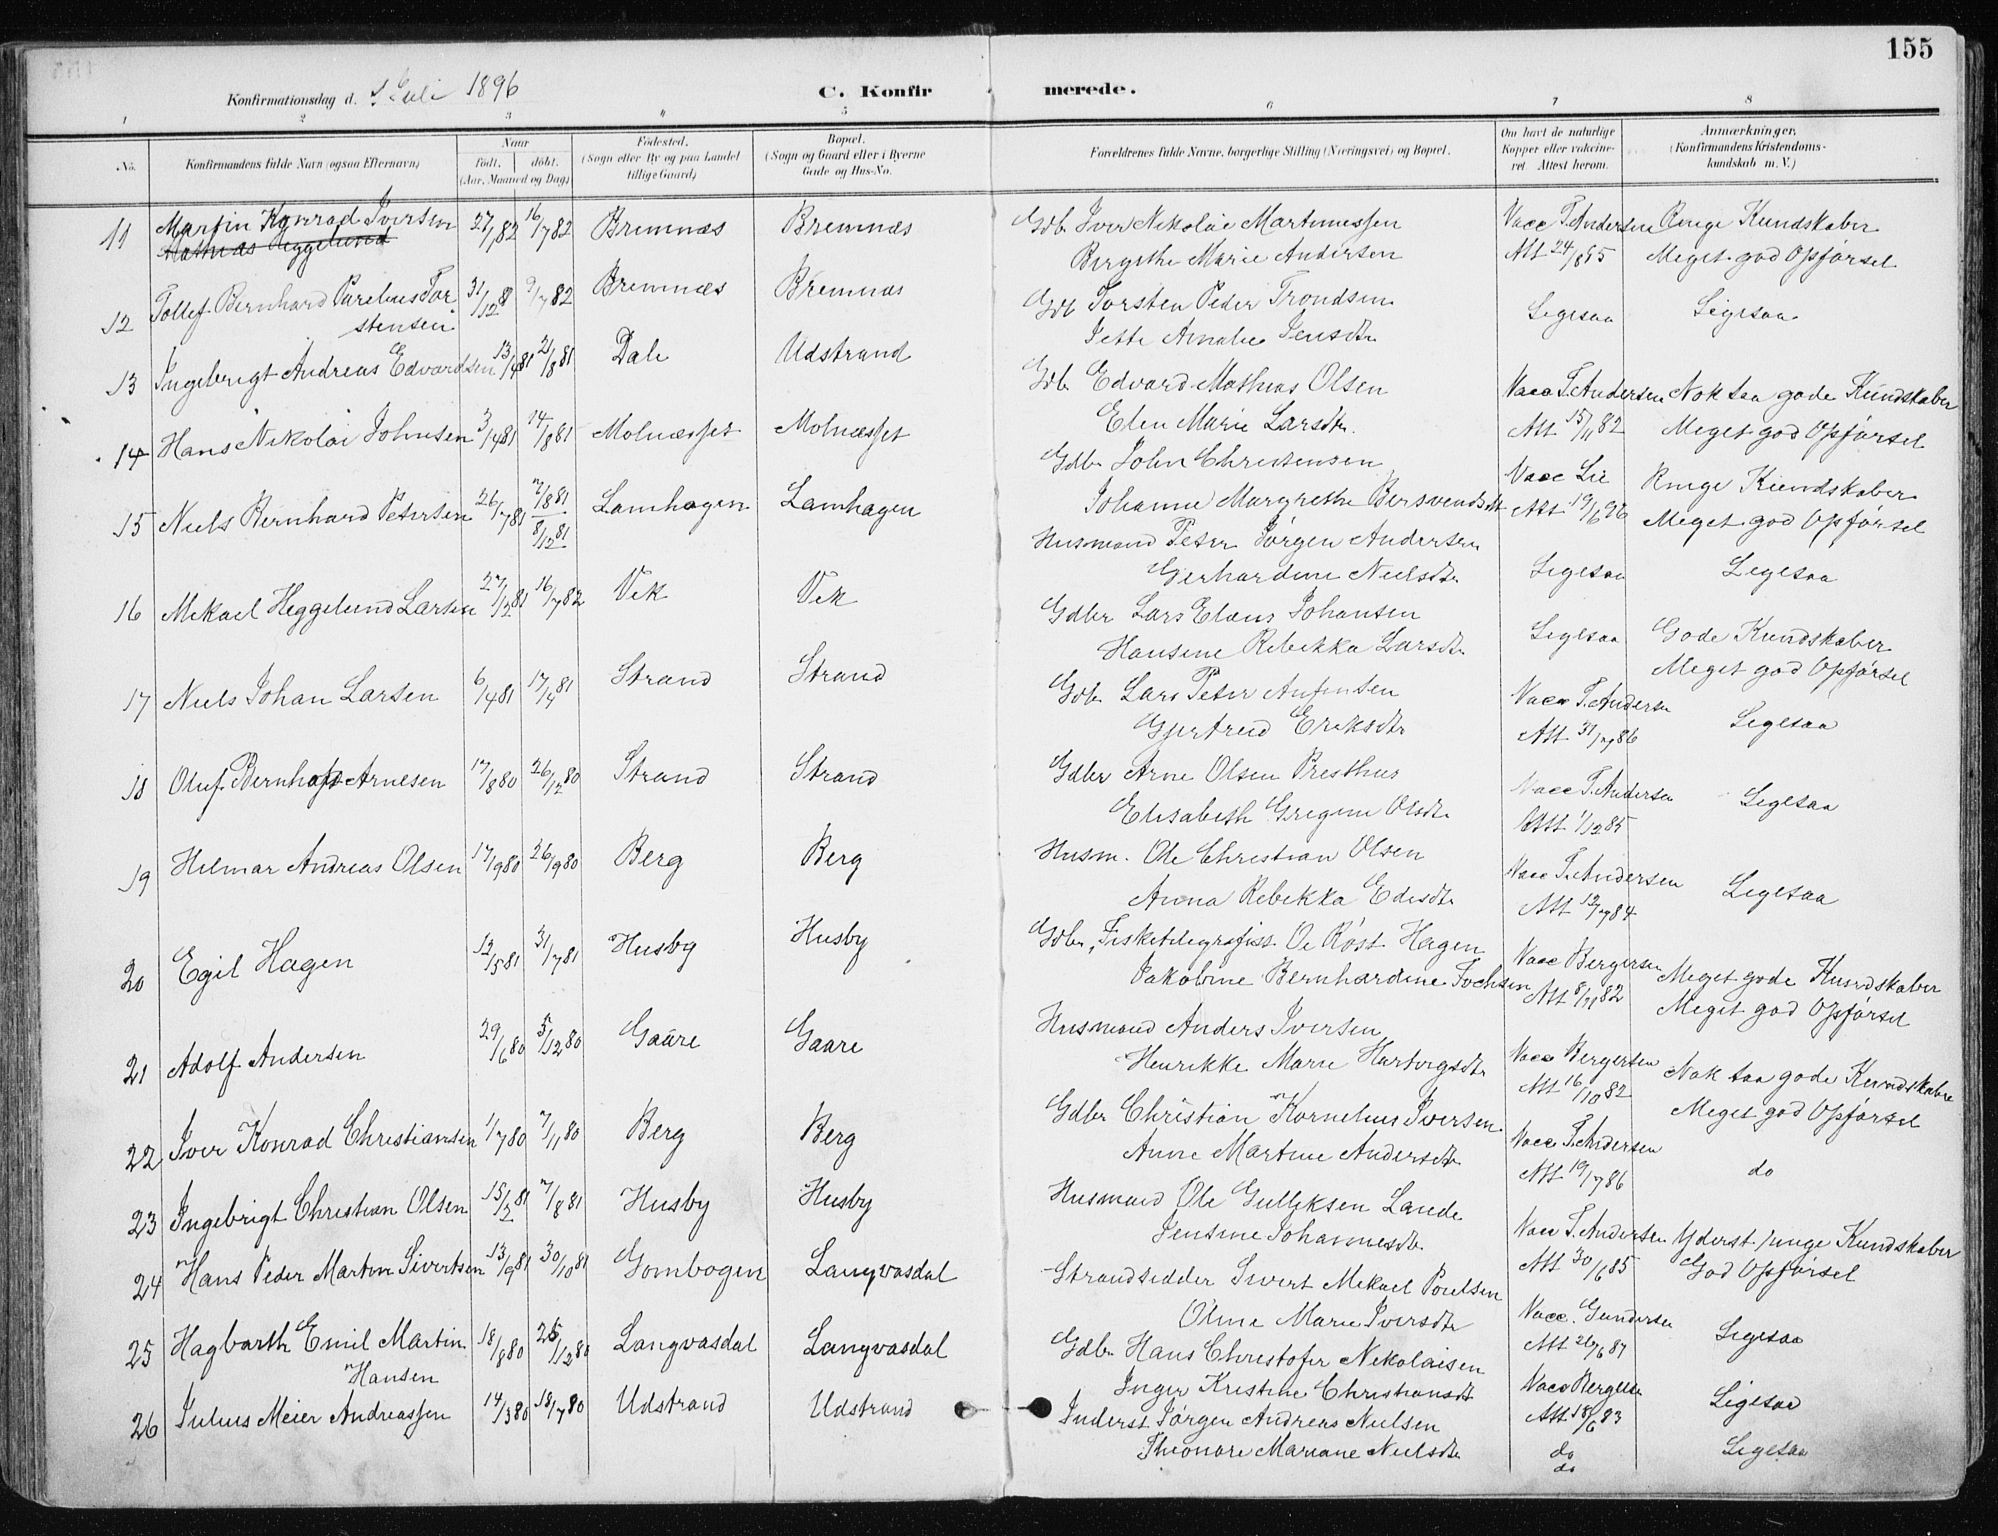 155
Konfirmationsdag d. Juli 1896
C. Konfirmerede.
1 2 3 4 5 6 7 8
No. Konfirmandens fulde Navn (ogsaa Efternavn) Naar født, døbt. (Aar, Maaned og Dag) Fødested. (Sogn eller By og paa Landet tillige Gaard) Bopæl. (Sogn og Gaard eller i Byerne Gade og Hus-No. Forældrenes fulde Navne, borgerlige Stilling (Næringsvei) og Bopæl. Om havt de naturlige Kopper eller vakcineret Attest herom. Anmærkninger. (Konfirmandens Kristendomskundskab m. V.)
11 Martin Konrad Iversen 27/1 82 16/7 82 Bremnæs Bremnæs Gdb. Iver Nikolai Martinussen Vacc T. Andersen Ringe Kundskaber
Mathias Heggelund Bergithe Marie Andersen Att 24/8 85 Meget god Opførsel
12 Tollef Bernhard Parelius Tor 31/12 8 9/7 82 Bremnæs Bremnæs Gdb Torsten Peder Trondsen Ligesaa Ligesaa
stensen Jette Amalie Jensdtr
13 Ingebrigt Andreas Edvardsen 13/4 81 21/8 81 Dale Udstrand Gdb. Edvard Mathias Olsen Vacc T. Andersen Nok saa gode Kundskaber
Elen Marie Larsdtr. Att 15/11 82 Meget god Opførsel
14 Hans Nikolai Johnsen 3/4 81 14/8 81 Molnæsset Molnæsset Gdbr John Christensen Vacc Lie Ringe Kundskaber
Johanna Margrethe Bersvendsdtr Att 19/6 96 Meget god Opførsel
15 Niels Bernhard Petersen 26/7 81 7/8 81 Lamhagen Lamhagen Husmand Peter Jørgen Andersen Ligesaa Ligesaa
8/12 81 Gerhardine Nielsdtr
16 Mikael Heggelund Larsen 27/12 81 16/7 82 Vik Vik Gdbr Lars Elæus Johansen Ligesaa Gode Kundskaber
Hansine Rebekka Larsdtr Meget god Opførsel
17 Niels Johan Larsen 6/4 81 17/4 81 Strand Strand Gdb. Lars Peter Anfinsen Vacc T. Andersen Ligesaa
Gjertrud Eriksdtr Att 31/7 86
18 Oluf Bernhard Arnesen 17/8 80 26/12 80 Strand Strand Gdbr Arne Olsen Presthus Vacc T. Andersen Ligesaa
Elisabeth Gregine Olsdtr Att 1/12 85
19 Hilmar Andreas Olsen 17/9 80 26/9 80 Berg Berg Husm. Ole Christian Olsen Vacc T. Andersen Ligesaa
Anna Rebekka Edisdtr Att 12/7 84
20 Egil Hagen 12/5 81 31/7 81 Husby Husby Gdbr, Fisketelegrafist. Ole Røst Hagen Vacc Bergersen Meget gode Kundskaber
Jakobine Bernhardine Fochsen Att 8/11 82 Meget god Opførsel
21 Adolf Andersen 29/6 80 5/12 80 Gaare Gaare Husmand Anders Iversen Vacc Bergersen Nok saa gode Kundskabe
Henrikke Marie Hartvigsdtr Att 16/10 82 Meget god Opførsel
22 Iver Konrad Christiansen 1/7 80 7/11 80 Berg Berg Gdbr Christian Kornelius Iversen Vacc T. Andersen do
Anne Martine Andersdtr Att 19/7 86
23 Ingebrigt Christian Olsen 15/2 81 7/8 81 Husby Husby Husmand Ole Gulliksen Lande Vacc T. Andersen Yderst ringe Kundskaber
Jensine Johannesdtr Att 30/6 85 God Opførsel
24 Hans Peder Martin Sivertsen 13/9 81 30/10 81 Gombogen Langvasdal Strandsidder Sivert Mikael Poulsen Vacc. Gundersen Ligesaa
Oline Marie Iversdtr Att 26/6 87
25 Hagbarth Emil Martin 18/8 80 26/12 80 Langvasdal Langvasdal Gdbr. Hans Christofer Nikolaisen Vacc Bergersen Ligesaa
Hansen Inger Kristine Christiansdtr Att 18/6 83
26 Julius Meier Andreassen 14/3 80 18/7 80 Udstrand Udstrand Inderst. Jørgen Andreas Nielsen do Ligesaa
Theonore Mariane Nielsdtr do